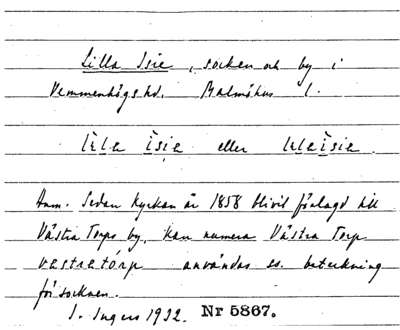 Lilla Isie, socken och by i
Vemmenhögs hd. Malmöhus l.
lɩla ìsie eller lɩlaìsie.
Anm. Sedan kyrkan år 1858 blivit förlagd till
Västra Torps by, kan numera Västra Torp
vestretórp användas ss. beteckning
för socknen.
I. Ingers 1932. Nr 5867.